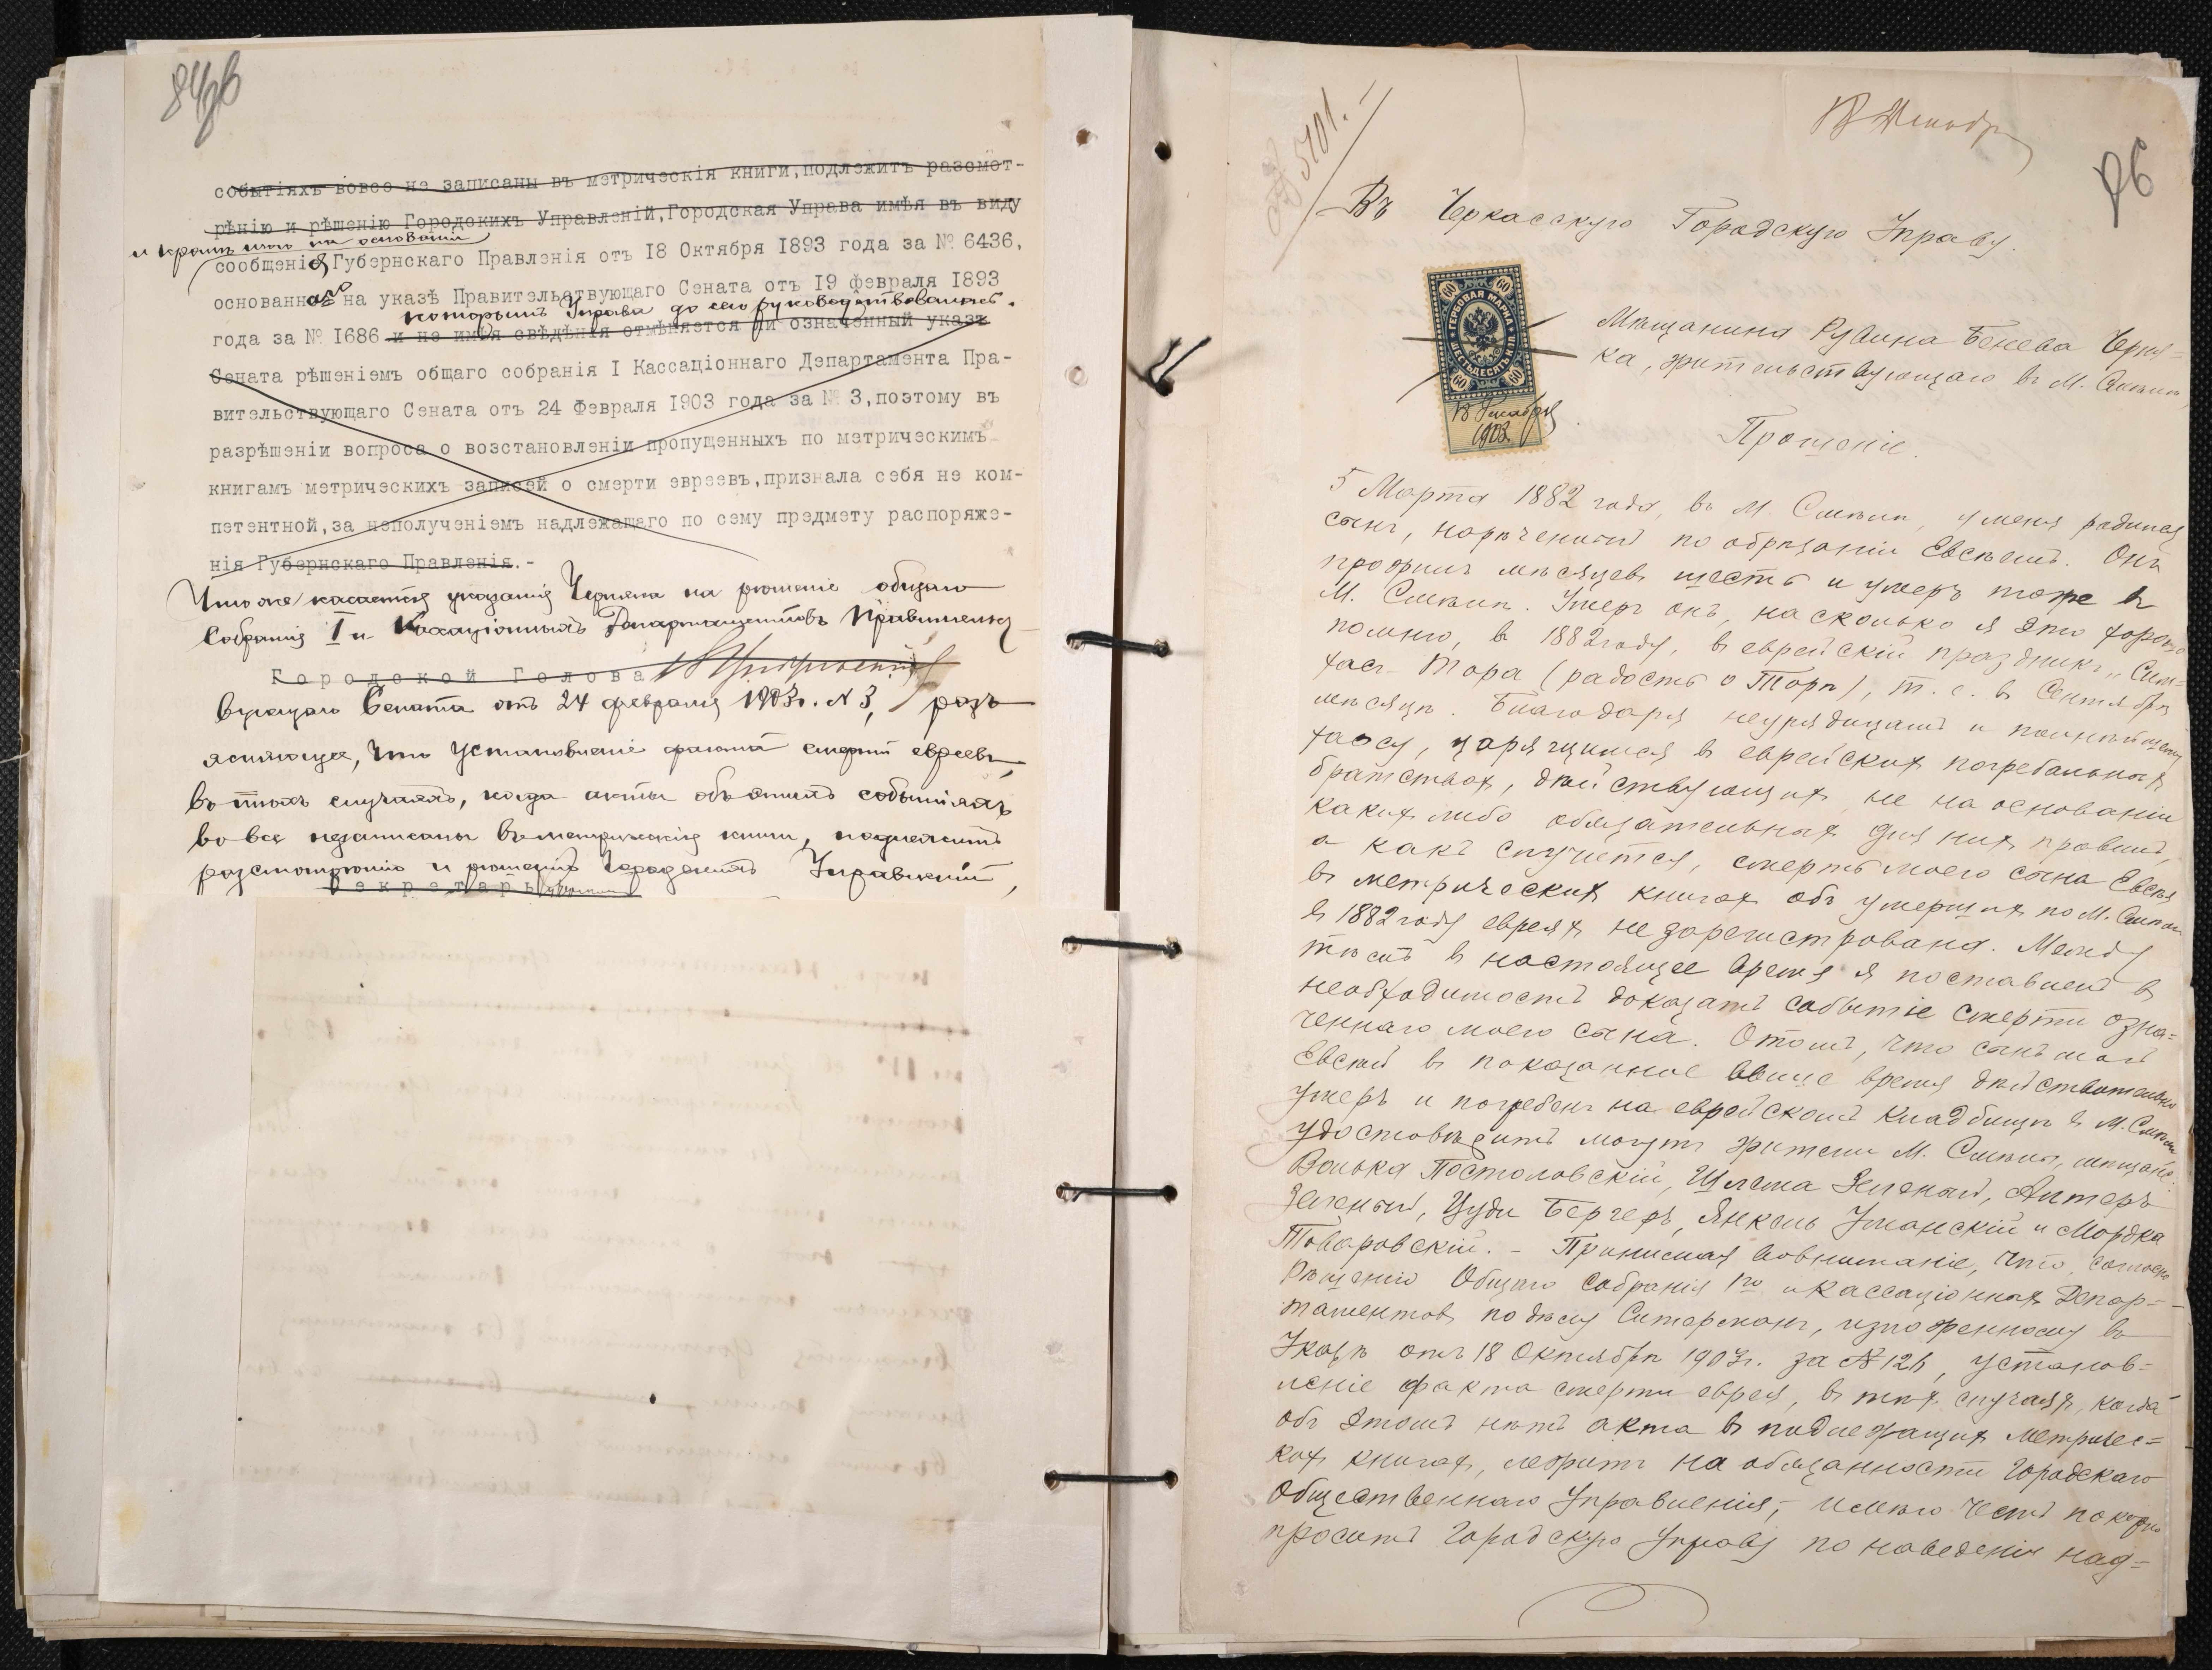 84об
событіяхъ вовсе не записаны въ метрическія книги, подлежитъ разсмот-
рѣнію и рѣшенію Городскихъ Управленій, Городская Управа имѣя въ виду
и кромѣ того на основаніи
сообщенія Губернскаго Правленія отъ 18 Октября 1893 года за № 6436,
основаннаго на указѣ Правительствующаго Сената отъ 19 февраля 1893
которымъ Управа до сего руководствовалась.
года за № 1686 и не имѣя свѣдѣнія отмѣняется ли означенный указъ
Сената рѣшеніемъ общаго собранія I Кассаціоннаго Департамента Пра-
вительствующаго Сената отъ 24 Февраля 1903 года за № 3, поэтому въ
разрѣшеніи вопроса о возстановленіи пропущенныхъ по метрическимъ
книгамъ метрическихъ записей о смерти евреевъ, признала себя не ком-
петентной, за неполученіемъ надлежащаго по сему предмету распоряже-
нія Губернскаго Правленія.-
Что же касается указанія Черняка на рѣшеніе общаго
Собранія I и Кассаціонныхъ Департаментовъ Правительст
Городской Голова
вующаго Сената отъ 24 февраля 1903г. № 3, разъ
ясняющее, что установленіе фактовъ смерти евреевъ,
въ тѣхъ случаяхъ, когда акты объ этихъ событіяхъ
вовсе незаписаны въ метрическія книги, подлежитъ
разсмотрѣнію и рѣшенію Городскихъ Управленій,
Секретарь
86
5101.
18 Декабр
Въ Черкасскую Городскую Управу.
60 60
ГЕРБОВАЯ МАРКА
ШЕСТЬДЕСЯТЪ КОП.
60 60
18 Декабря
1903
Мѣщанина Рувина Бенева Черня=
ка, жительствующаго въ М. Смѣлѣ,
Прошеніе.
5 Марта 1882 года, въ М. Смѣлѣ, у меня родился
сынъ, нарѣченный по обрѣзаніи Евсѣемъ. Онъ
прожилъ мѣсяцевъ шесть и умеръ тоже въ
М. Смѣлѣ. Умеръ онъ, на сколько я это хорошо
помню, въ 1882 году, въ еврейскій праздникъ „Сим=
хас-Тора (радость о Торѣ), т. е. въ Сентябрѣ
мѣсяцѣ. Благодаря неурядицамъ и полнѣйшему
хаосу, царящимся въ еврейскихъ погребальныхъ
братствахъ, дѣйствующихъ не на основаніи
какихъ либо обязательныхъ для нихъ правилъ,
а какъ случится, смерть моего сына Евсѣя
въ метрическихъ книгахъ объ умершихъ по М. Смѣлѣ
въ 1882 году евреяхъ не зарегистрована. Между
тѣмъ въ настоящее время я поставленъ въ
необходимость доказать событіе смерти озна=
ченнаго моего сына. О томъ, что сынъ мой
Евсѣй въ показанное выше время дѣйствительно
умеръ и погребенъ на еврейскомъ кладбищѣ въ М. Смѣлѣ
удостовѣрить могутъ жители М. Смѣлы, мѣщане:
Волька Постоловскій, Шлема Зеленый, Алтеръ
Зеленый, Цуди Бергеръ, Янкель Уманскій и Мордка
Товаровскій. - Принимая вовниманіе, что, согласно
Рѣшенію Общаго Собранія 1го и Кассаціонныхъ Депар=
таментовъ по дѣлу Ситерманъ, изложенному въ
Указѣ отъ 18 Октября 1903г. за № 126, установ=
леніе факта смерти еврея, въ тѣхъ случаяхъ, когда
объ этомъ нѣтъ акта въ подлежащихъ метричес=
кихъ книгахъ, лежитъ на обязанности Городскаго
Общественнаго Управленія, - имѣю честь покорно
просить Городскую Управу по наведеніи над=